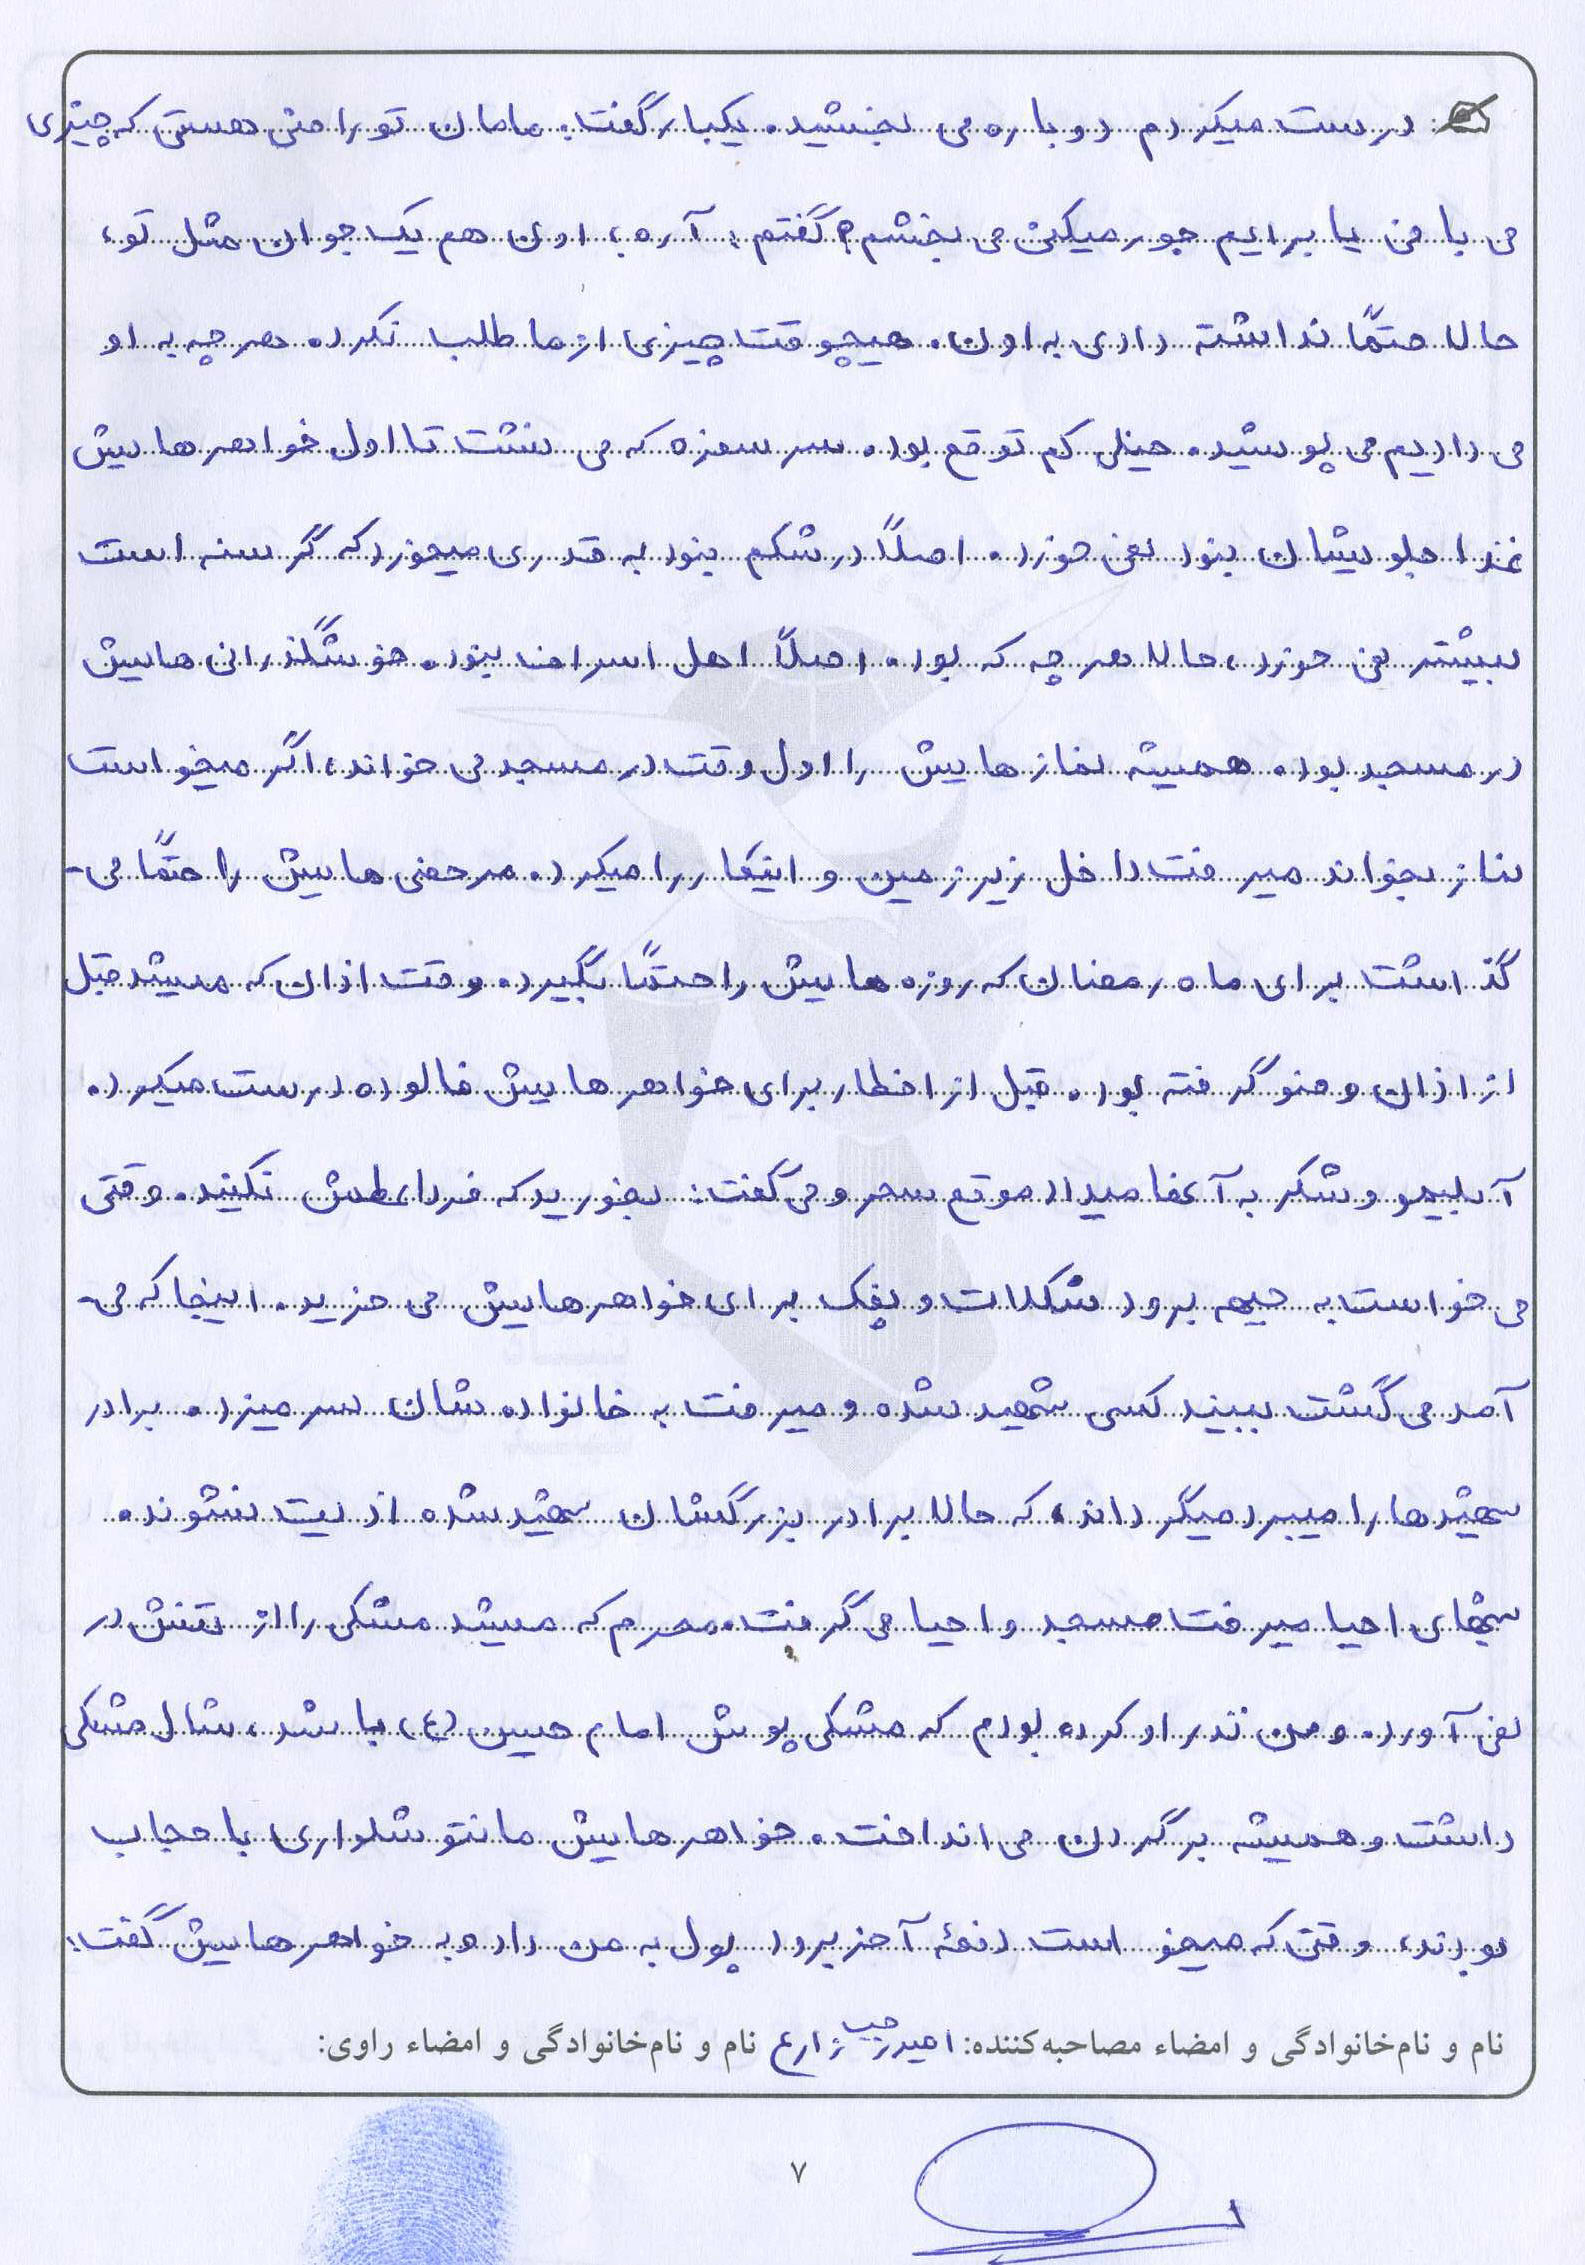 درست میکردم دوباره می بخشید. یکبار گفت: مامان تو راضی هستی که چیزی
می با من یا برایم جور میکنی می بخشم؟ گفتم: آره، اون هم یک جوان مثل تو،
حالا حتماً نداشته دادی به اون. هیچوقت چیزی از ما طلب نکرد. هر چه به او
می دادیم می پوشید. خیلی کم توقع بود. سر سفره که می نشست تا اول خواهرهایش
غذا جلویشان نبود نمی خورد. اصلاً در شکم نبود به قدری میخورد که گرسنه است
بیشتر نمی خورد، حالا هر چه که بود. اصلاً اهل اسراف نبود. خوشگذرانی هایش
در مسجد بود. همیشه نمازهایش را اول وقت در مسجد می خواند، اگر میخواست
نماز بخواند میرفت داخل زیرزمین و اینکار را میکرد. مرخصی هایش را حتماً می-
گذاشت برای ماه رمضان که روزه هایش را حتماً بگیرد. وقت اذان که میشد قبل
از اذان وضو گرفته بود. قبل از افطار برای خواهرهایش فالوده درست میکرد.
آبلیمو و شکر به آنها میداد موقع سحر و می گفت: بخورید که فردا عطش نکنید. وقتی
می خواست به جبهه برود شکلات و پفک برای خواهرهایش می خرید. اینجا که می-
آمد می گشت ببیند کسی شهید شده و میرفت به خانواده شان سر میزد. برادر
شهیدها را میبرد میگرداند، که حالا برادر بزرگشان شهید شده اذیت نشوند.
شبهای احیا میرفت مسجد و احیا می گرفت. محرم که میشد مشکی را از تنش در
نمی آورد. و من نذر او کرده بودم که مشکی پوش امام حسین (ع) باشد، شال مشکی
داشت و همیشه بر گردن می انداخت. خواهرهایش مانتو شلواری با حجاب
بودند، وقتی که میخواست دفعهٔ آخر برود پول به من داد و به خواهرهایش گفت:
نام و نام‌خانوادگی و امضاء مصاحبه‌کننده: امیررجب زارع نام و نام‌خانوادگی و امضاء راوی:
۷